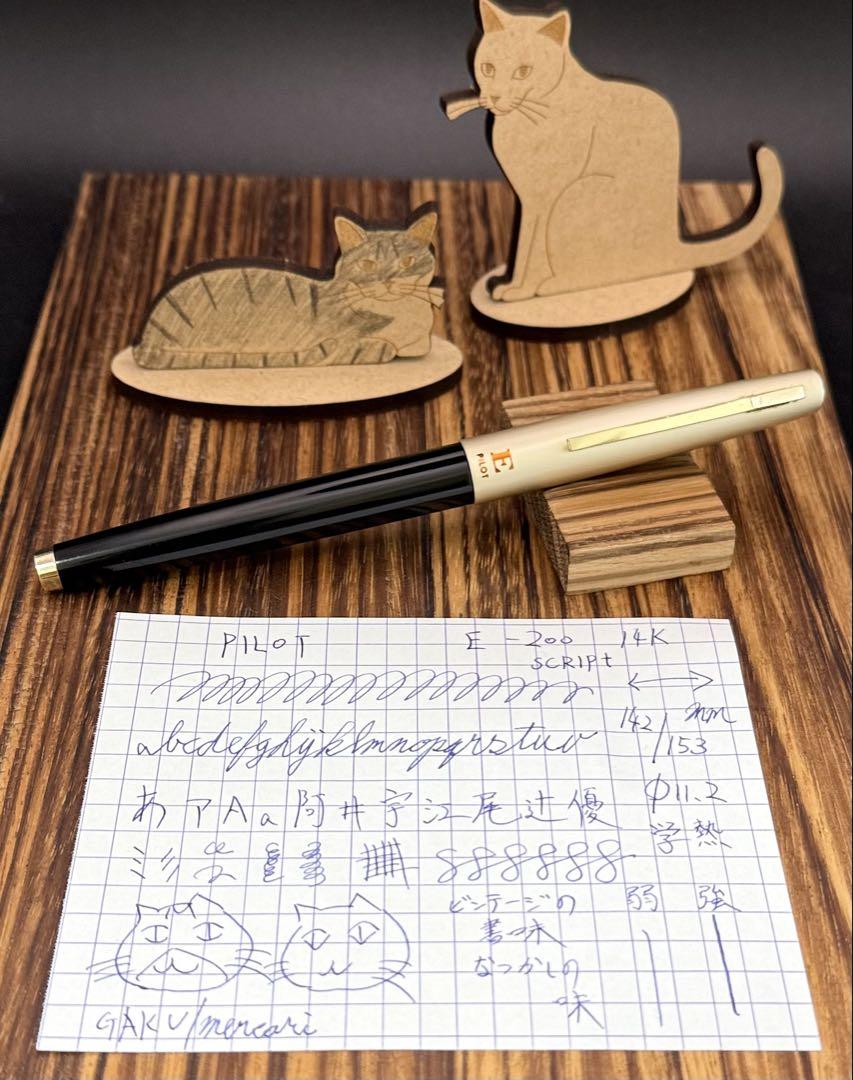 E
PILOT
PILOT E-200 14K
SCRIPt
142/153 mm
abcdefghijklmnopqrstuv
φ11.2
あ ア A a 阿 井 宇 江 尾 辻 優
学 熱
ビンテージの 弱 強
書味
なつかしの
味
GAKU/mercari